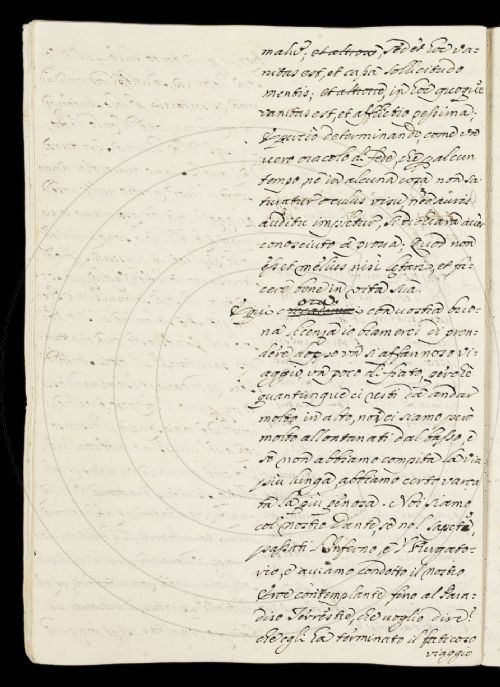 malu; et altrove, sed et hoc va-
nitas est, et cassa sollicitudo
mentis; et altrove, in hoc quoque
vanitas est, et afflictio pessima;
E perciò determinando, come un
vero oracolo di fede, che per alcun
tempo né in alcuna cosa non sa-
turatur oculus visu, nec auris
auditu impletur, si dichiara aver
conosciuto a prova: Quod non
esset melius nisi letari, et fa-
cere bene in vita sua.
E qui ora con vostra buo-
na licenza io bramerei di pren-
dere dopo un sì affannoso vi-
aggio un poco di fiato, perché
quantunque ci resti da andar
molto in alto, non ci siamo però
molto allontanati dal basso, e
se non abbiamo compita la via
più lunga, abbiamo certo varca-
ta la più penosa. Noi siamo
col nostro Dante, se nol sapete,
passati l'Inferno, e 'l Purgato-
rio, e aviamo condotto il nostro
Eroe contemplante fino al Para-
diso Terrestre, che voglio dire!
che egli ha terminato il faticoso
viaggio